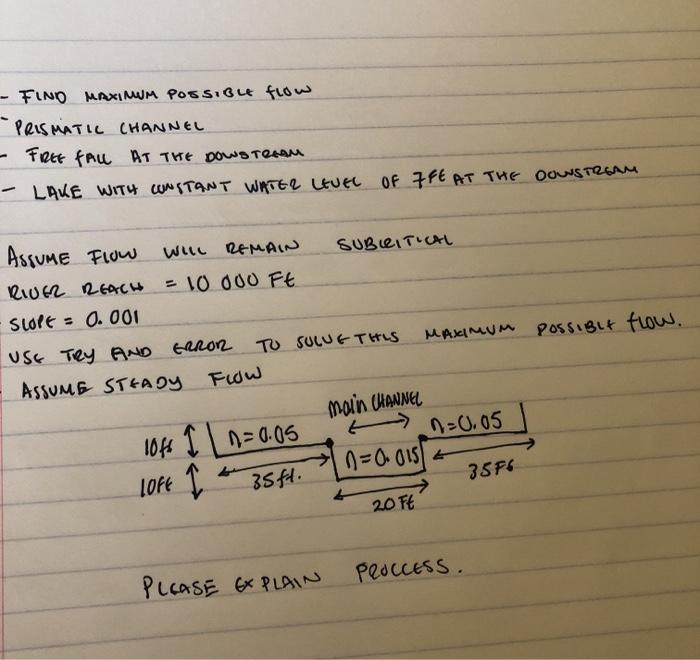 - FIND MAXIMUM POSSIBLE flow
- PRISMATIC CHANNEL
- FREE FALL AT THE DOWSTREAM
- LAKE WITH CONSTANT WATER LEVEL OF 7FE AT THE DOWNSTREAM
ASSUME FLOW WILL REMAIN SUBCRITICAL
RIVER REACH = 10 000 FE
SLOPE = 0.001
USE TRY AND ERROR TO SOLVE THIS MAXIMUM POSSIBLE flow.
ASSUME STEADY FLOW
main CHANNEL
10ft n=0.05 n=0.05
10FE 35ft. n=0.015 35Ft
20 FE
PLEASE EXPLAIN PROCCESS.